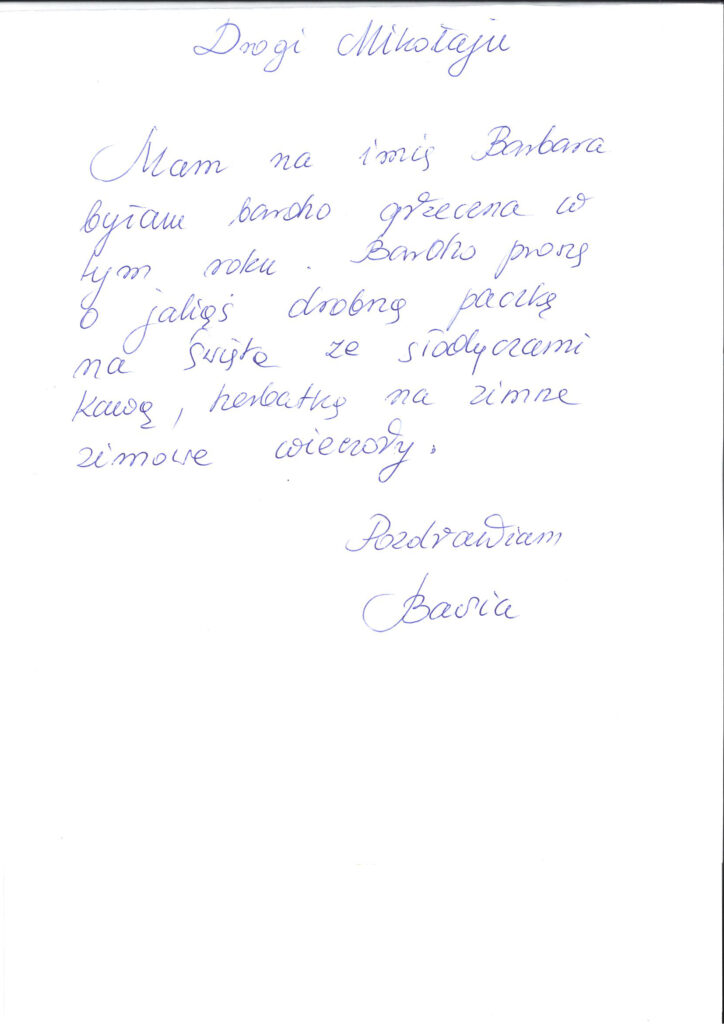 Drogi Mikołaju
Mam na imię Barbara
byłam bardzo grzeczna w
tym roku. Bardzo proszę
o jakięś drobną paczkę
na święta ze słodyczami
kawą, herbatką na zimne
zimowe wieczory.
Pozdrawiam
Basia